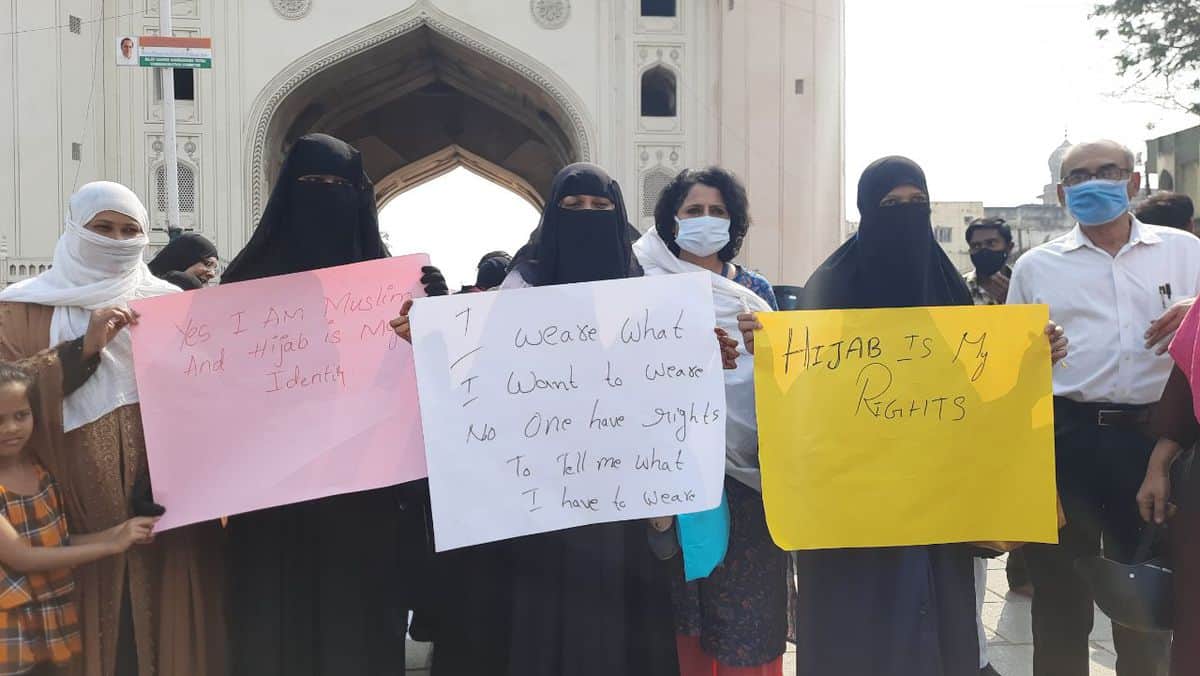 Yes I AM Muslim
And Hijab is My
Identity
I weare what
I want to weare
No one have rights
To Tell me what
I have to weare
HIJAB IS My
RIGHTS